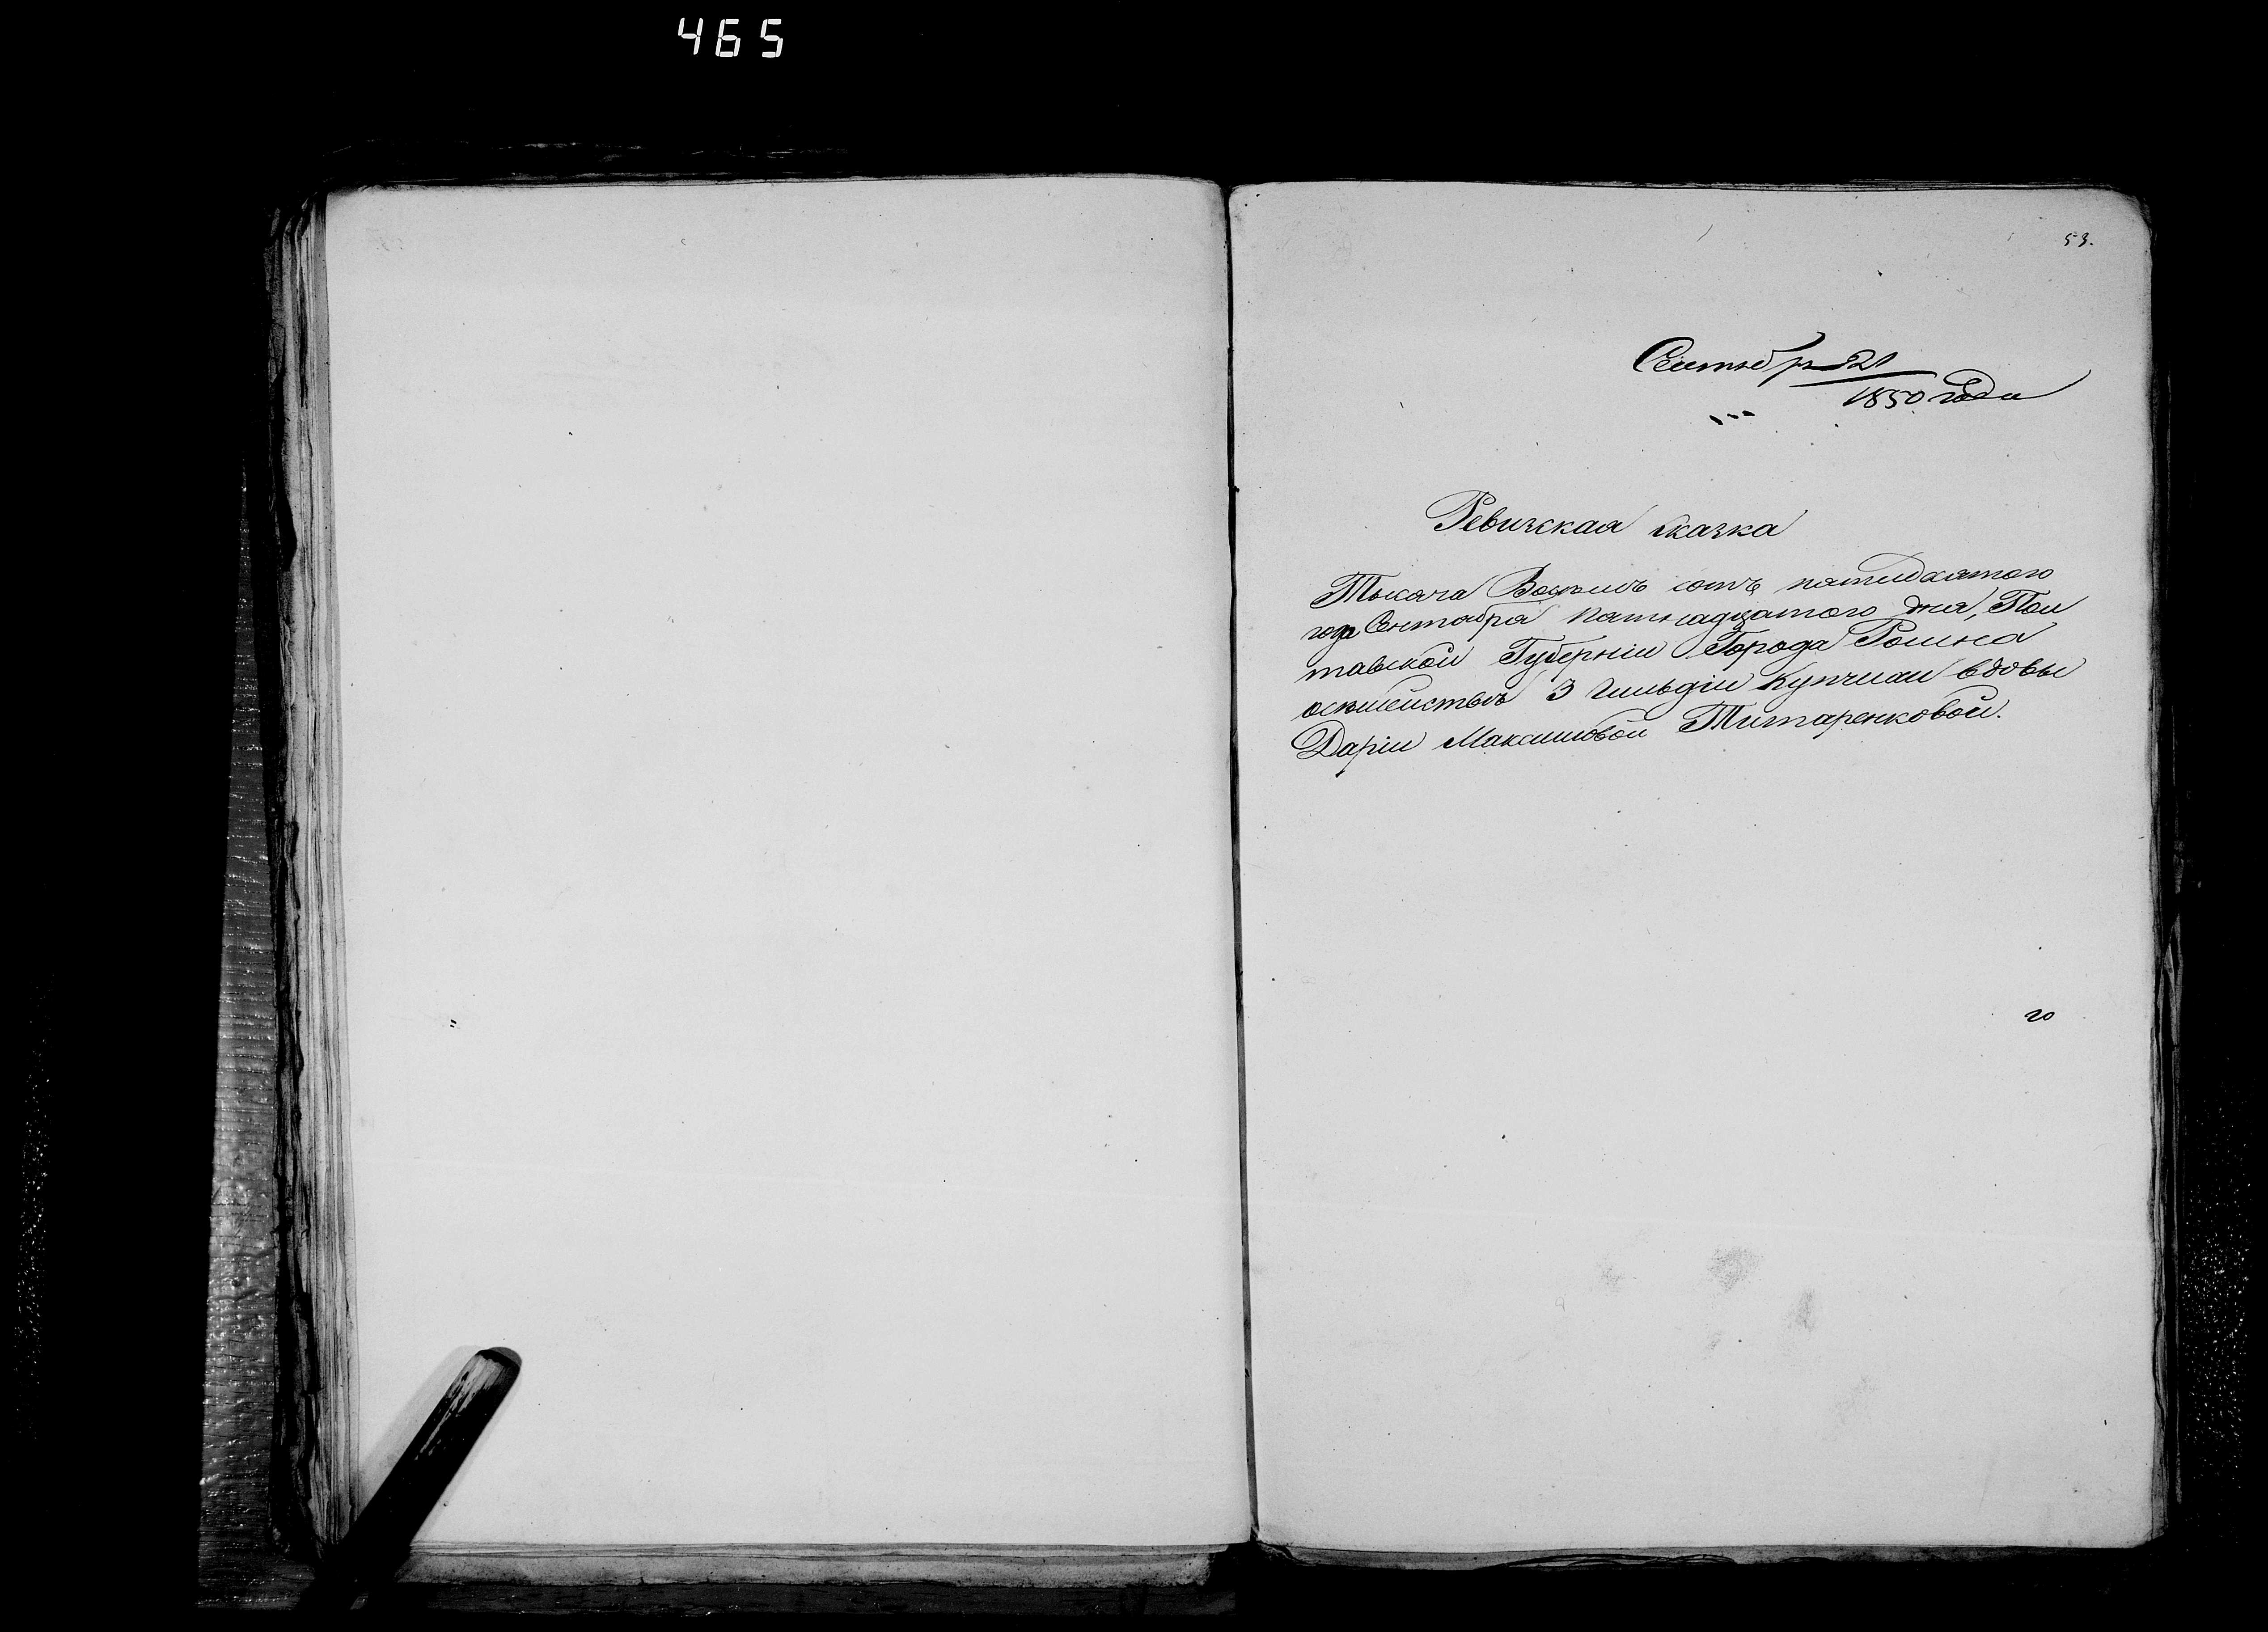 465
53.
Сентябр 21
1850 года
Ревизская сказка
Тысяча Восемь сотъ пятидесятого
года Сентября пятнадцатого дня, Пол
тавской Губерніи Города Ромна
3 Гильдіи Купчихи вдовы
Даріи Максимовой Титаренковой.
го